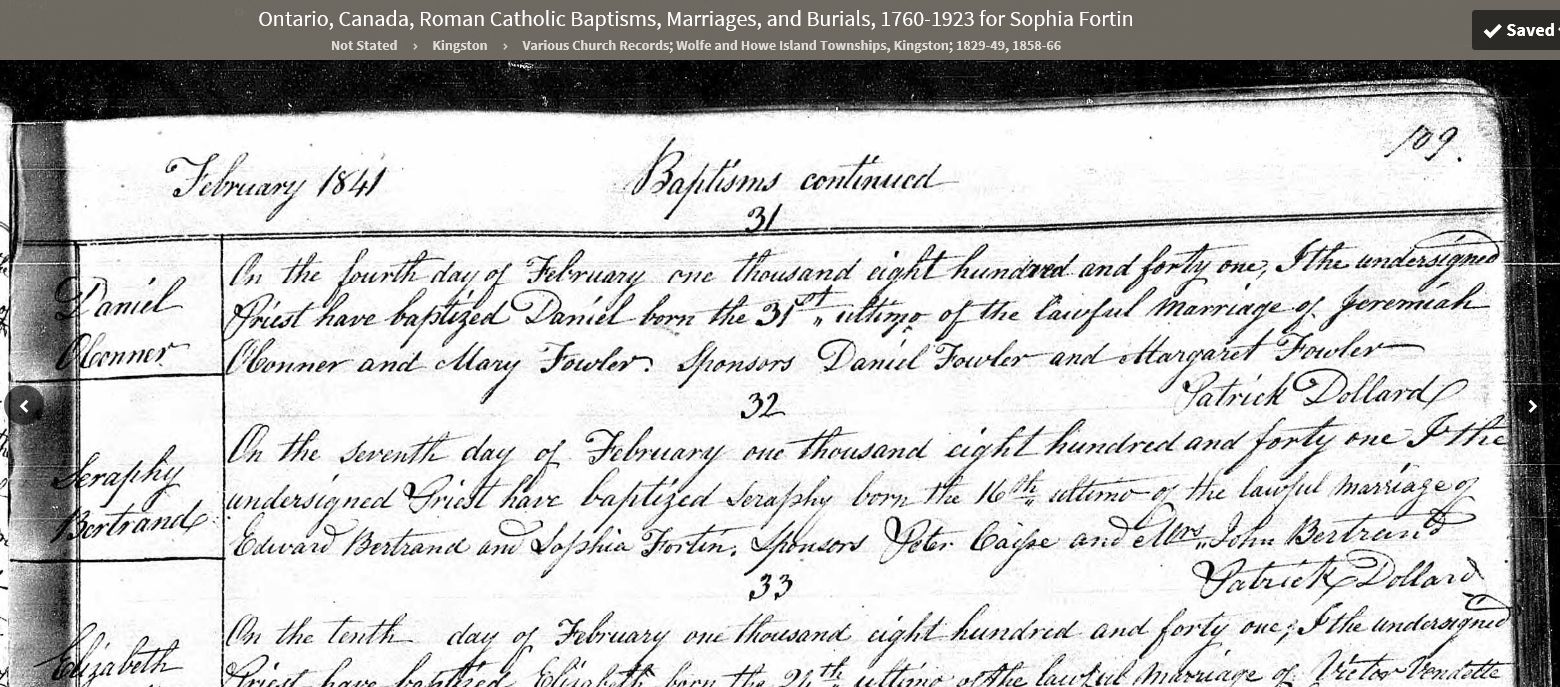 Ontario, Canada, Roman Catholic Baptisms, Marriages, and Burials, 1760-1923 for Sophia Fortin
Not Stated › Kingston › Various Church Records; Wolfe and Howe Island Townships, Kingston; 1829-49, 1858-66
Saved
109.
February 1841 Baptisms continued
31
Daniel
OConner
On the fourth day of February one thousand eight hundred and forty one, I the undersigned
Priest have baptized Daniel born the 31st ultimo of the lawful marriage of Jeremiah
OConner and Mary Fowler. Sponsors Daniel Fowler and Margaret Fowler
Patrick Dollard
32
Seraphy
Bertrand
On the seventh day of February one thousand eight hundred and forty one I the
undersigned Priest have baptized Seraphy born the 16th ultimo of the lawful marriage of
Edward Bertrand and Sophia Fortin. Sponsors Peter and Mrs John Bertrand
Patrick Dollard
33
Elizabeth
On the tenth day of February one thousand eight hundred and forty one; I the undersigned
Priest have baptized Elizabeth born the 24th ultimo of the lawful marriage of Victor Vendette